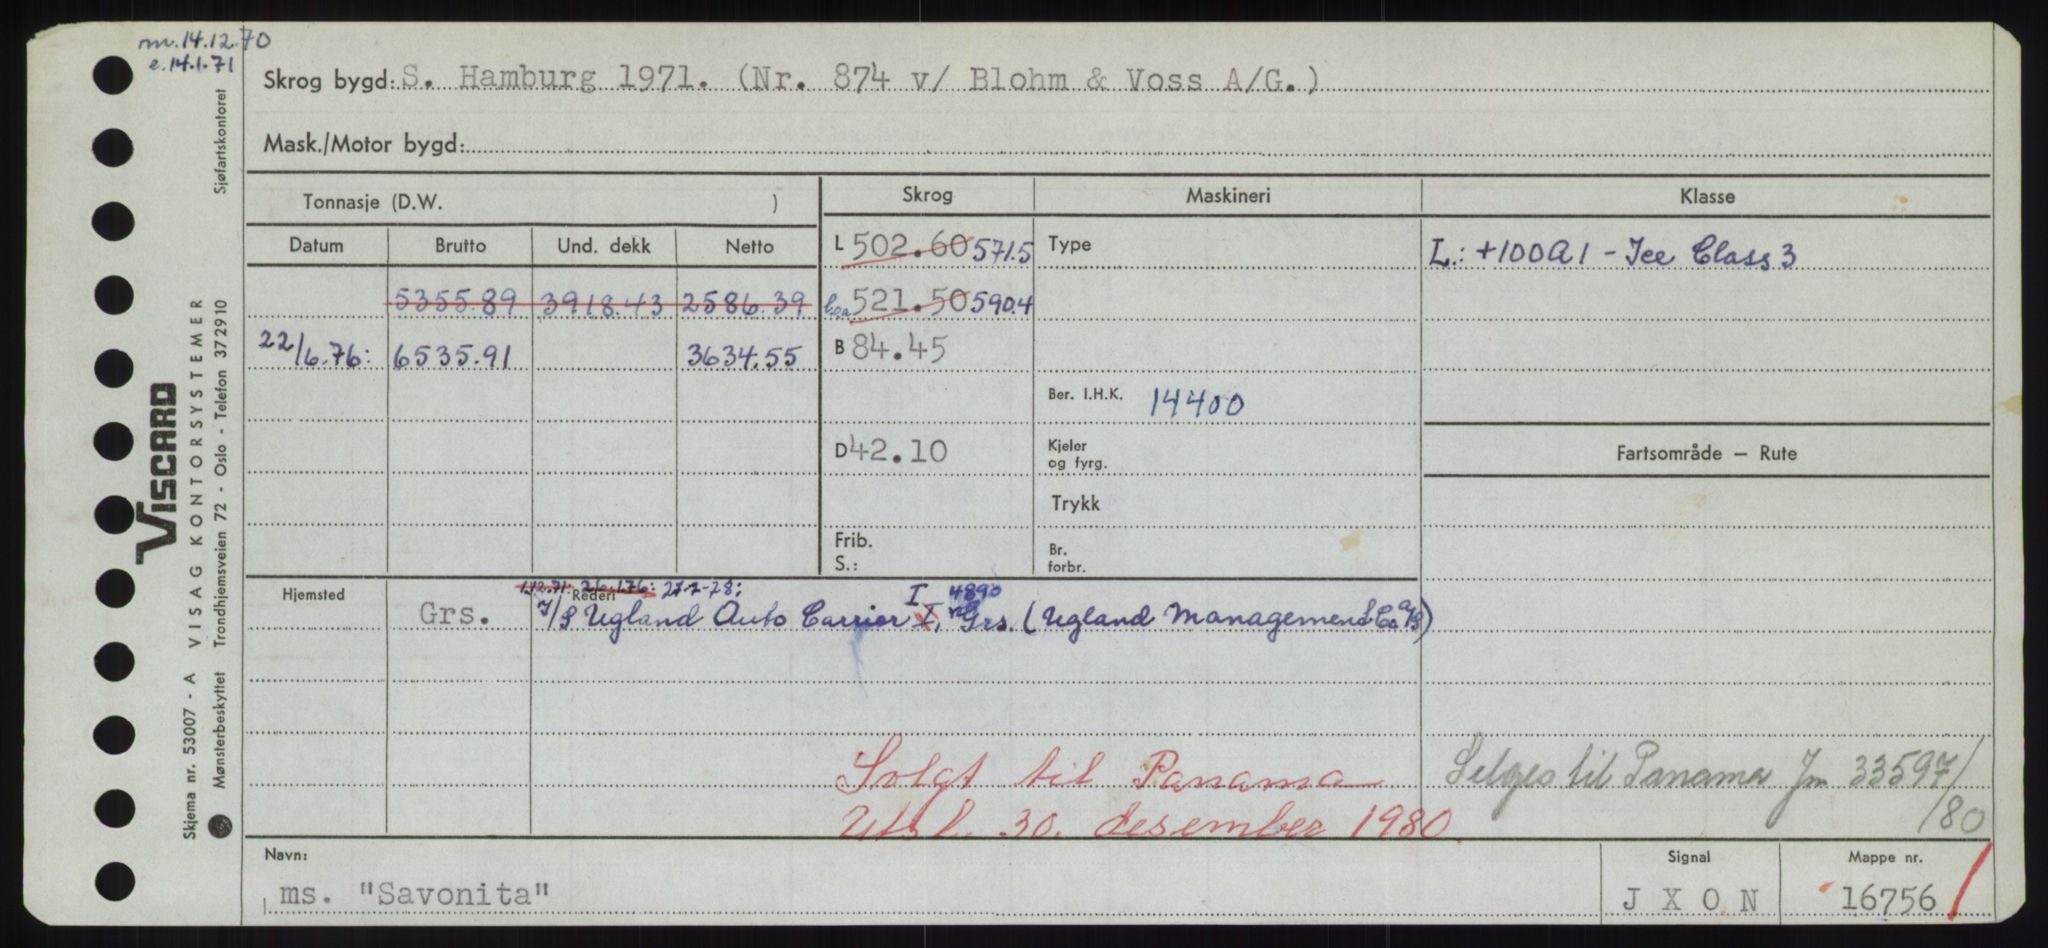 m. 14.12.70
e. 14.1.71
Skrog bygd: S. Hamburg 1971. (Nr. 874 v/ Blohm & Voss A/G.)
Mask./Motor bygd:
Tonnasje (D.W. )
Skrog
Maskineri
Klasse
Datum Brutto Und. dekk Netto
L 502.60 571.5
Type
L.: +100A1 - Ice Class 3
5355.89 3918.43 2586.39
Loa 521.50 590.4
22/6.76: 6535.91 3634.55
B 84.45
Ber. I.H.K. 14400
D 42.10
Kjeler
og fyrg.
Fartsområde – Rute
Trykk
Frib.
S.:
Br.
forbr.
Hjemsted
Rederi
26.1.76: 27-7-78:
I 4890
Grs. I/S Ugland Auto Carrier I, Grs. (Ugland Management Co A/S)
Solgt til Panama
Selges til Panama Jn 33597/80
Utsl. 30. desember 1980.
Navn:
ms. "Savonita"
Signal
J X O N
Mappe nr.
16756
Skjema nr. 53007 - A VISAG KONTORSYSTEMER
VISCARD
Mønsterbeskyttet Trondhjemsveien 72 - Oslo - Telefon 372910 Sjøfartskontoret